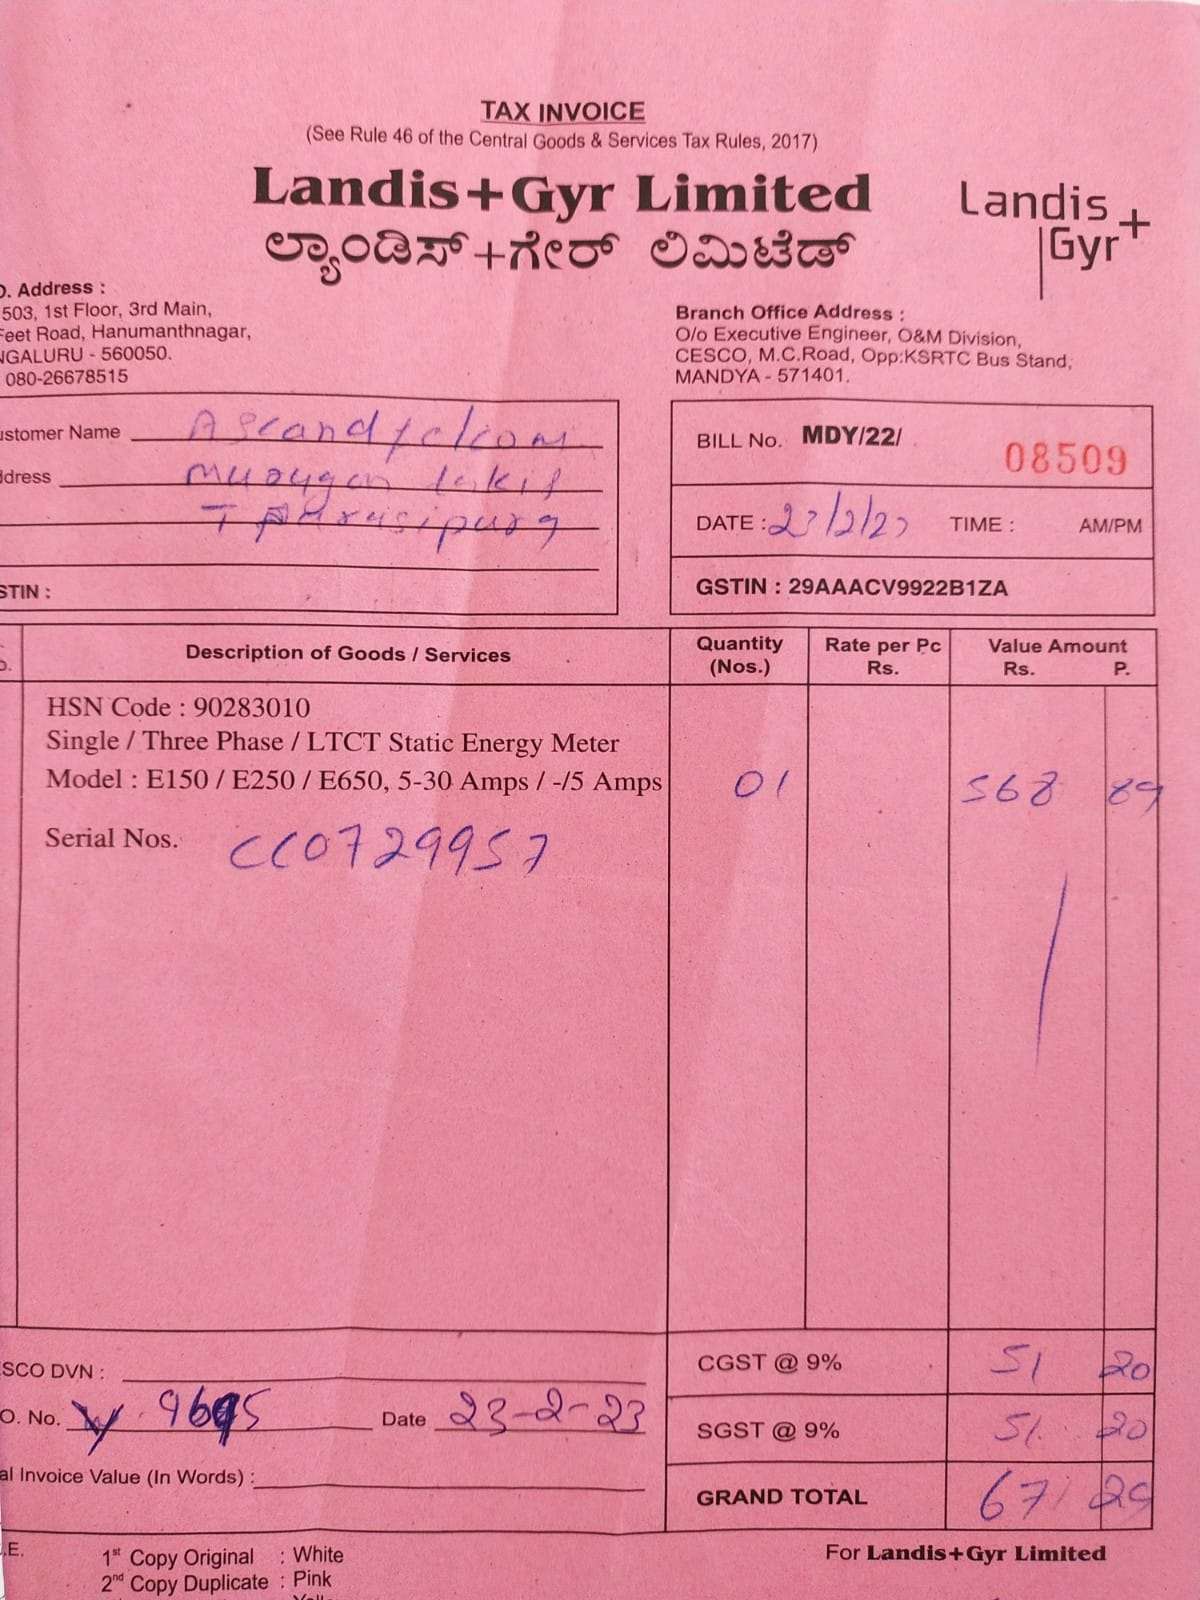 TAX INVOICE
(See Rule 46 of the Central Goods & Services Tax Rules, 2017)
Landis+Gyr Limited
ಲ್ಯಾಂಡಿಸ್+ಗೇರ್ ಲಿಮಿಟೆಡ್
Landis
Gyr+
O. Address :
503, 1st Floor, 3rd Main,
Feet Road, Hanumanthnagar,
NGALURU - 560050.
080-26678515
Branch Office Address :
O/o Executive Engineer, O&M Division,
CESCO, M.C.Road, Opp:KSRTC Bus Stand,
MANDYA - 571401.
ustomer Name
ddress
STIN :
BILL No. MDY/22/ 08509
DATE : 23/2/23 TIME : AM/PM
GSTIN : 29AAACV9922B1ZA
Description of Goods / Services
Quantity (Nos.)
Rate per Pc Rs.
Value Amount
Rs. P.
HSN Code : 90283010
Single / Three Phase / LTCT Static Energy Meter
Model : E150 / E250 / E650, 5-30 Amps / -/5 Amps 01 568 89
Serial Nos. CC0729957
ESCO DVN :
CGST @ 9% 51 20
O. No. 9695 Date 23-2-23
SGST @ 9% 51 20
al Invoice Value (In Words) :
GRAND TOTAL 671 29
.E.
1st Copy Original : White
2nd Copy Duplicate : Pink
For Landis+Gyr Limited